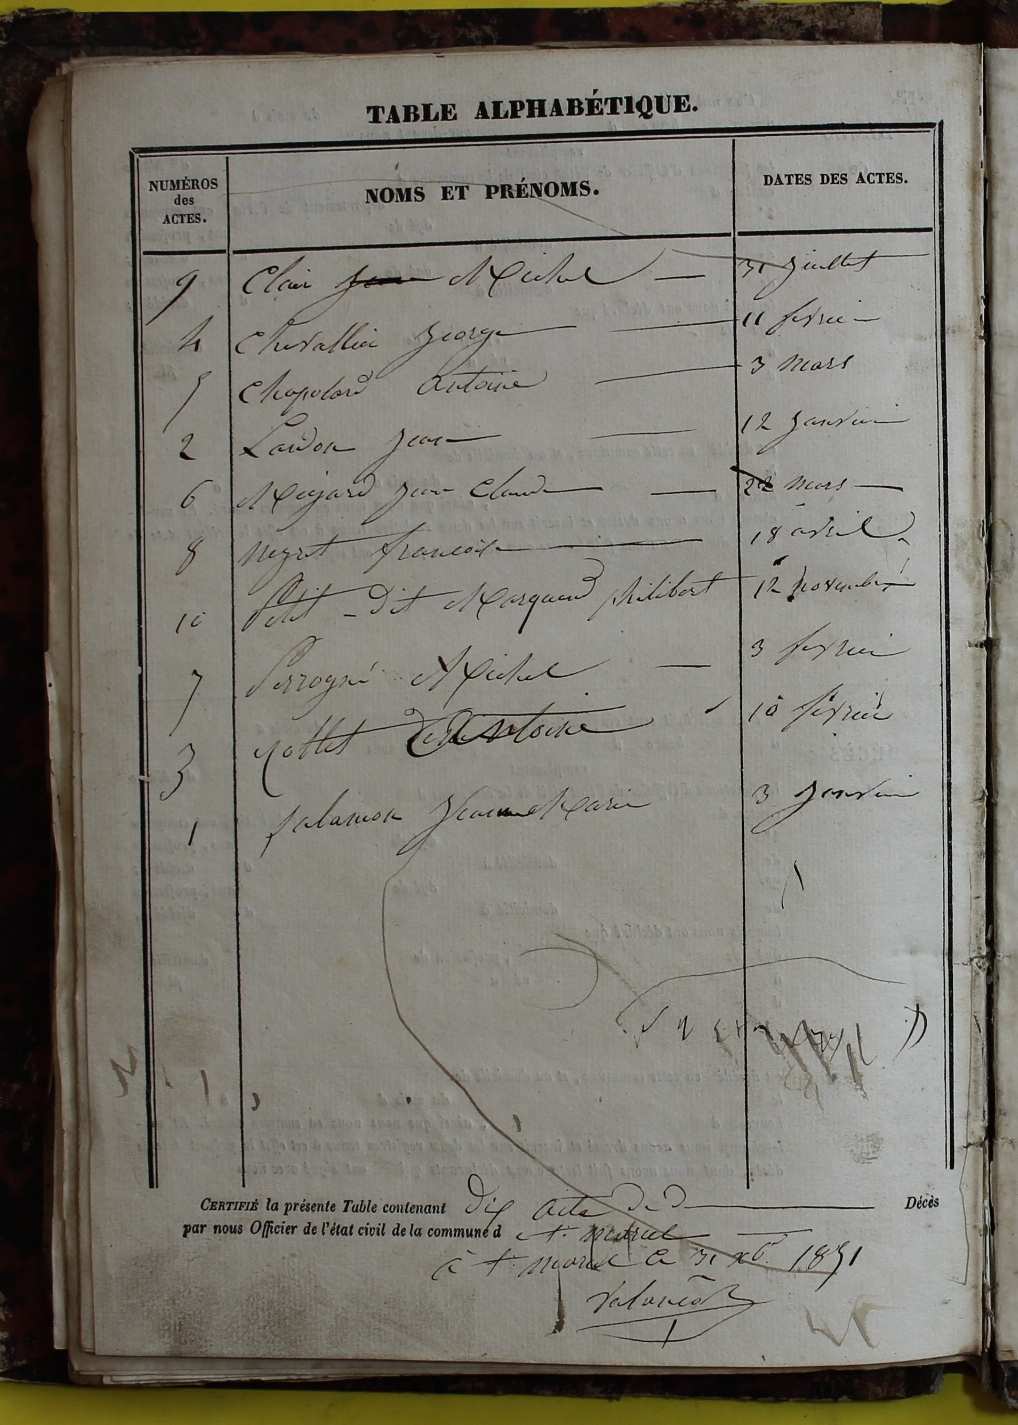 TABLE ALPHABÉTIQUE.
NUMÉROS des ACTES. NOMS ET PRÉNOMS. DATES DES ACTES.
9 Clair Jean Michel — 31 Juillet
4 Chevallier George — 11 février
5 Chapolard Antoine — 3 mars
2 Landon Jean — 12 Janvier
6 Mizard Jean Claude — 22 mars —
8 Neyret francois — 18 avril
10 Petit - Dit Marquand philibert 12 novembre
7 Perrogné Michel — 3 février
3 Rottet Antoine 10 février
1 Salamon Jean Marie 3 Janvier
CERTIFIÉ la présente Table contenant dix acte de d Décès
par nous Officier de l'état civil de la commune d St. Marcel
à St. Marcel le 31 xb. 1851